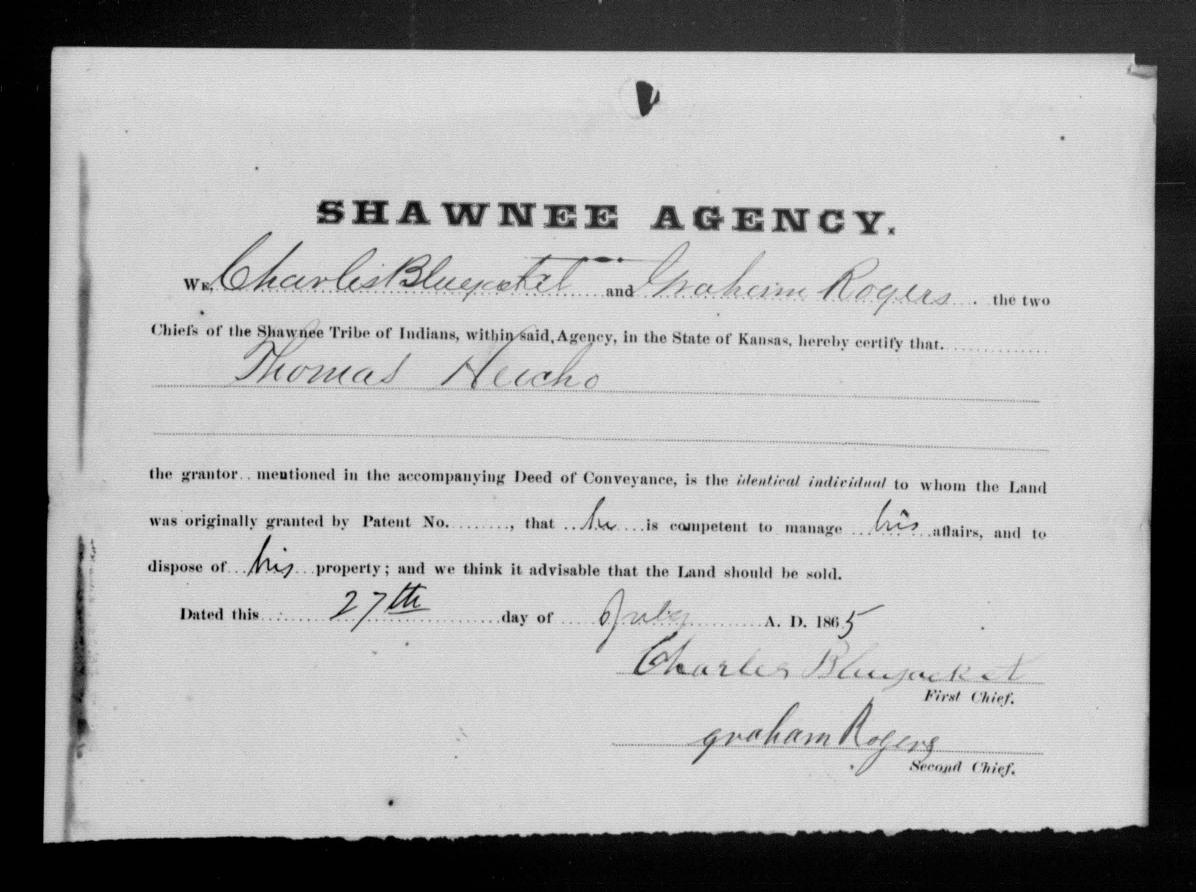 SHAWNEE AGENCY.
WE, Charles Bluejacket and Graham Rogers the two
Chiefs of the Shawnee Tribe of Indians, within said Agency, in the State of Kansas, hereby certify that
Thomas
the grantor mentioned in the accompanying Deed of Conveyance, is the identical individual to whom the Land
was originally granted by Patent No. , that he is competent to manage his affairs, and to
dispose of his property; and we think it advisable that the Land should be sold.
Dated this 27th day of July A. D. 1865
Charles Bluejacket
First Chief.
graham Rogers
Second Chief.